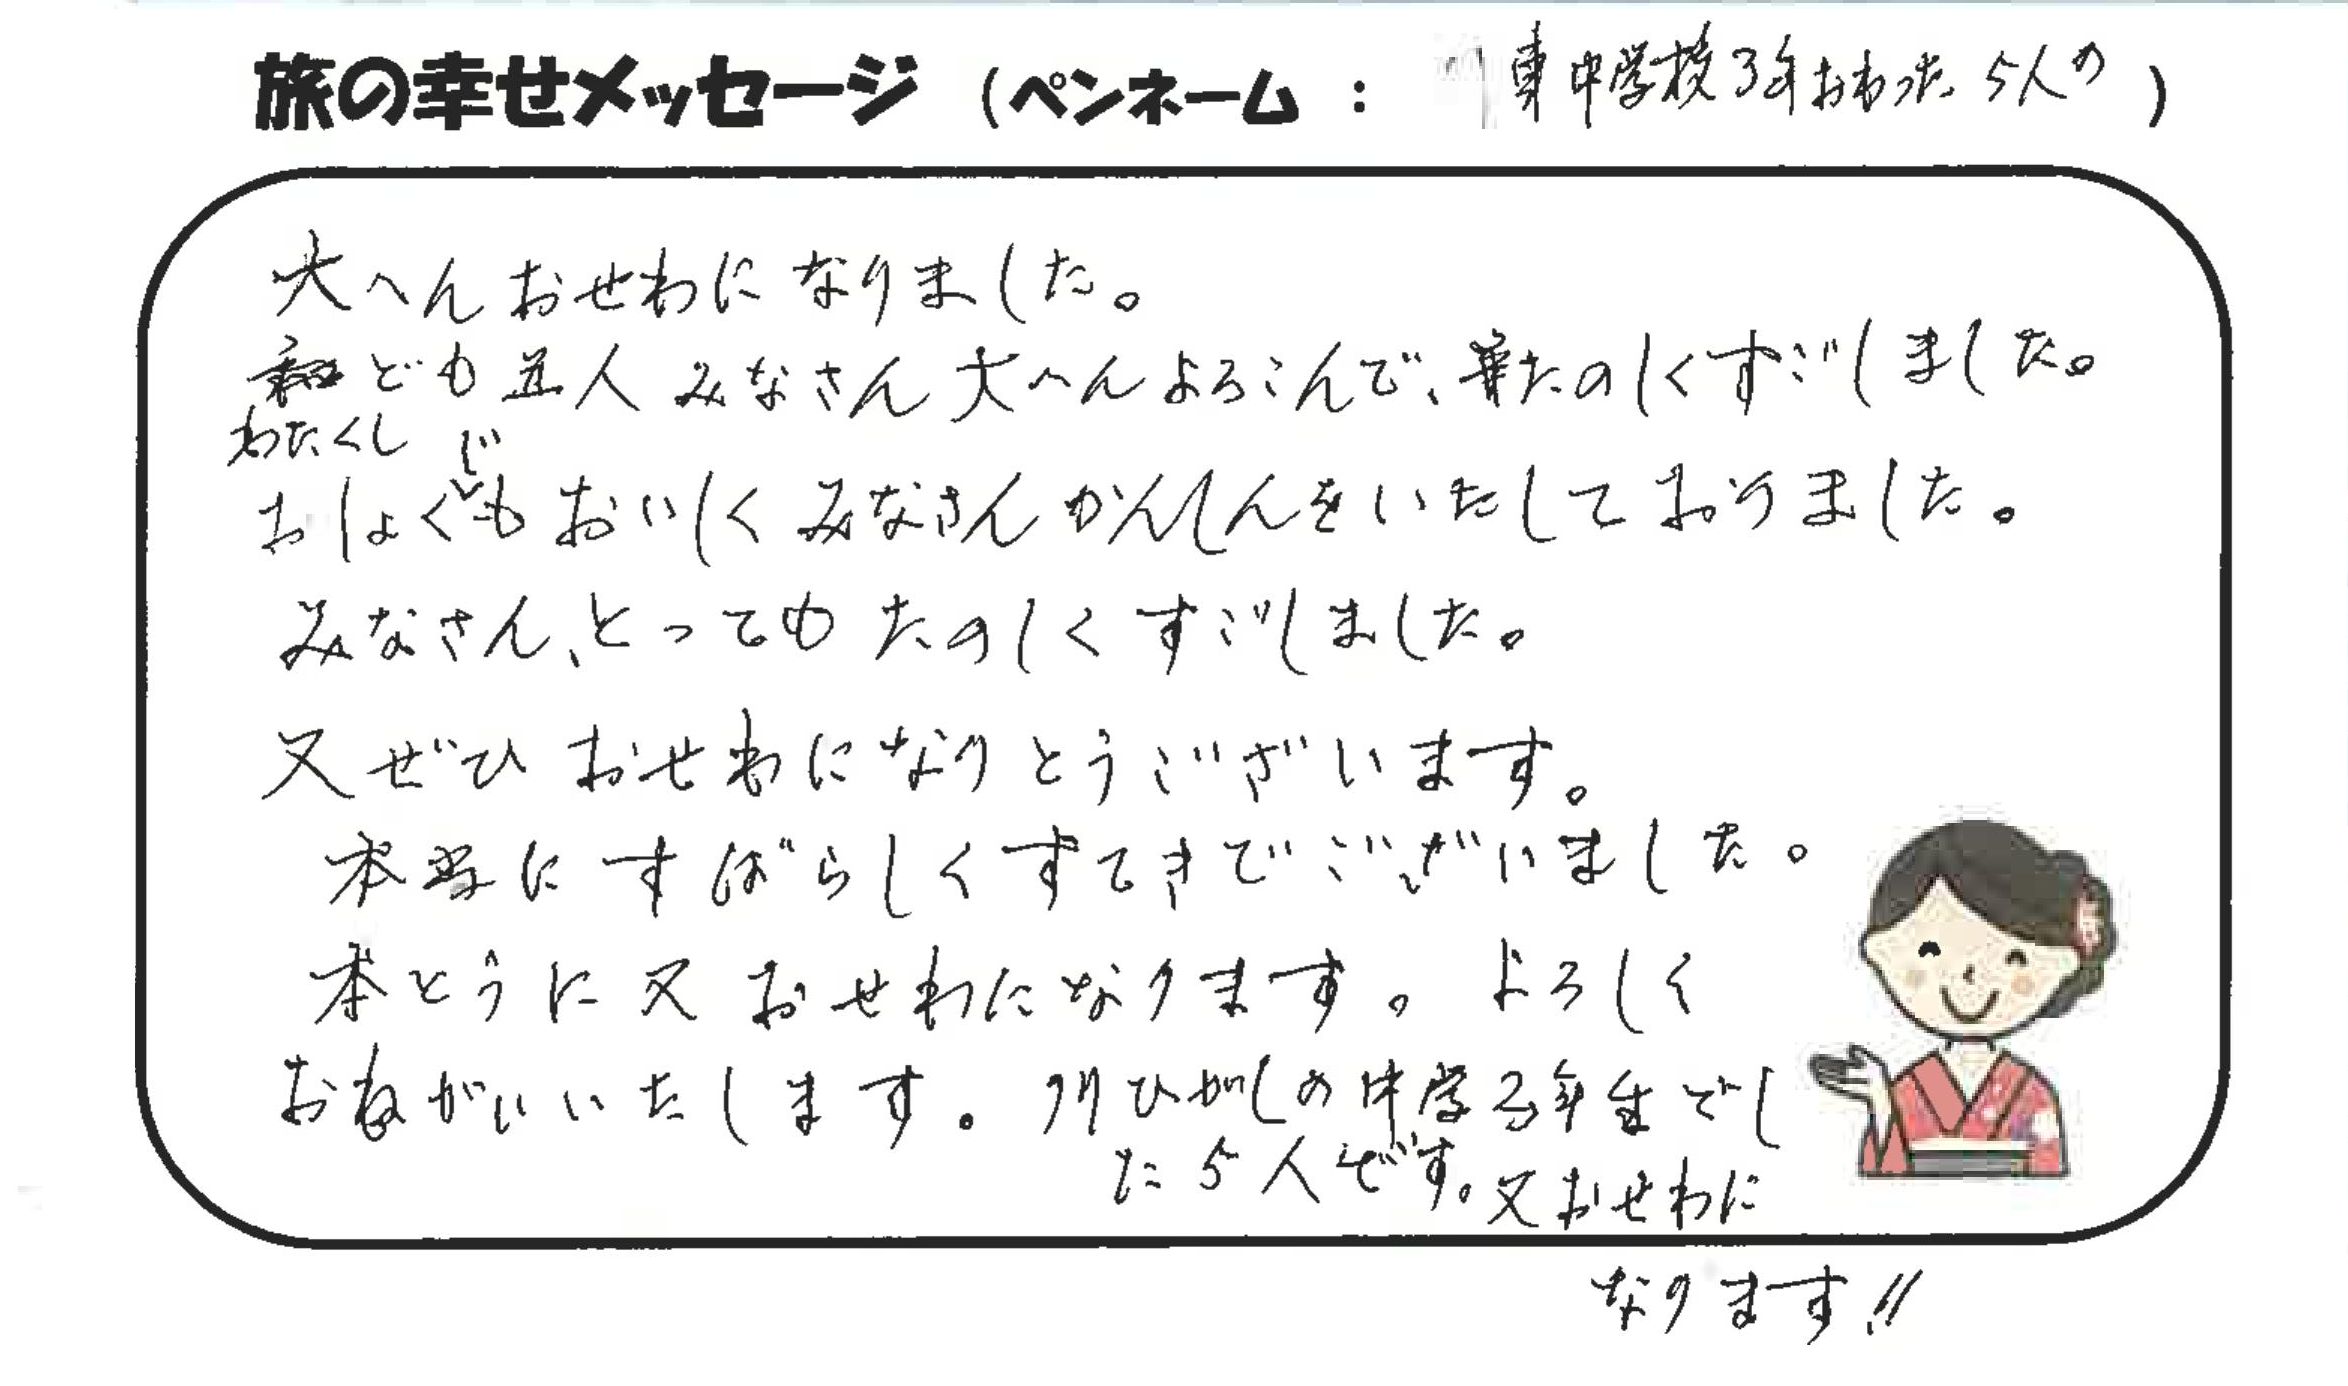 旅の幸せメッセージ (ペンネーム : 東中学校3年おわった5人の)
大へんおせわになりました。
私ども五人みなさん大へんよろこんで、たのしくすごしました。
わたくし じ
おしょくじもおいしくみなさんかんしんをいたしておりました。
みなさん、とってもたのしくすごしました。
又ぜひおせわになりとうございます。
本当にすばらしくすてきでございました。
本とうに又おせわになります。よろしく
おねがいいたします。ひがしの中学3年生でし
た5人です。又おせわに
なります!!